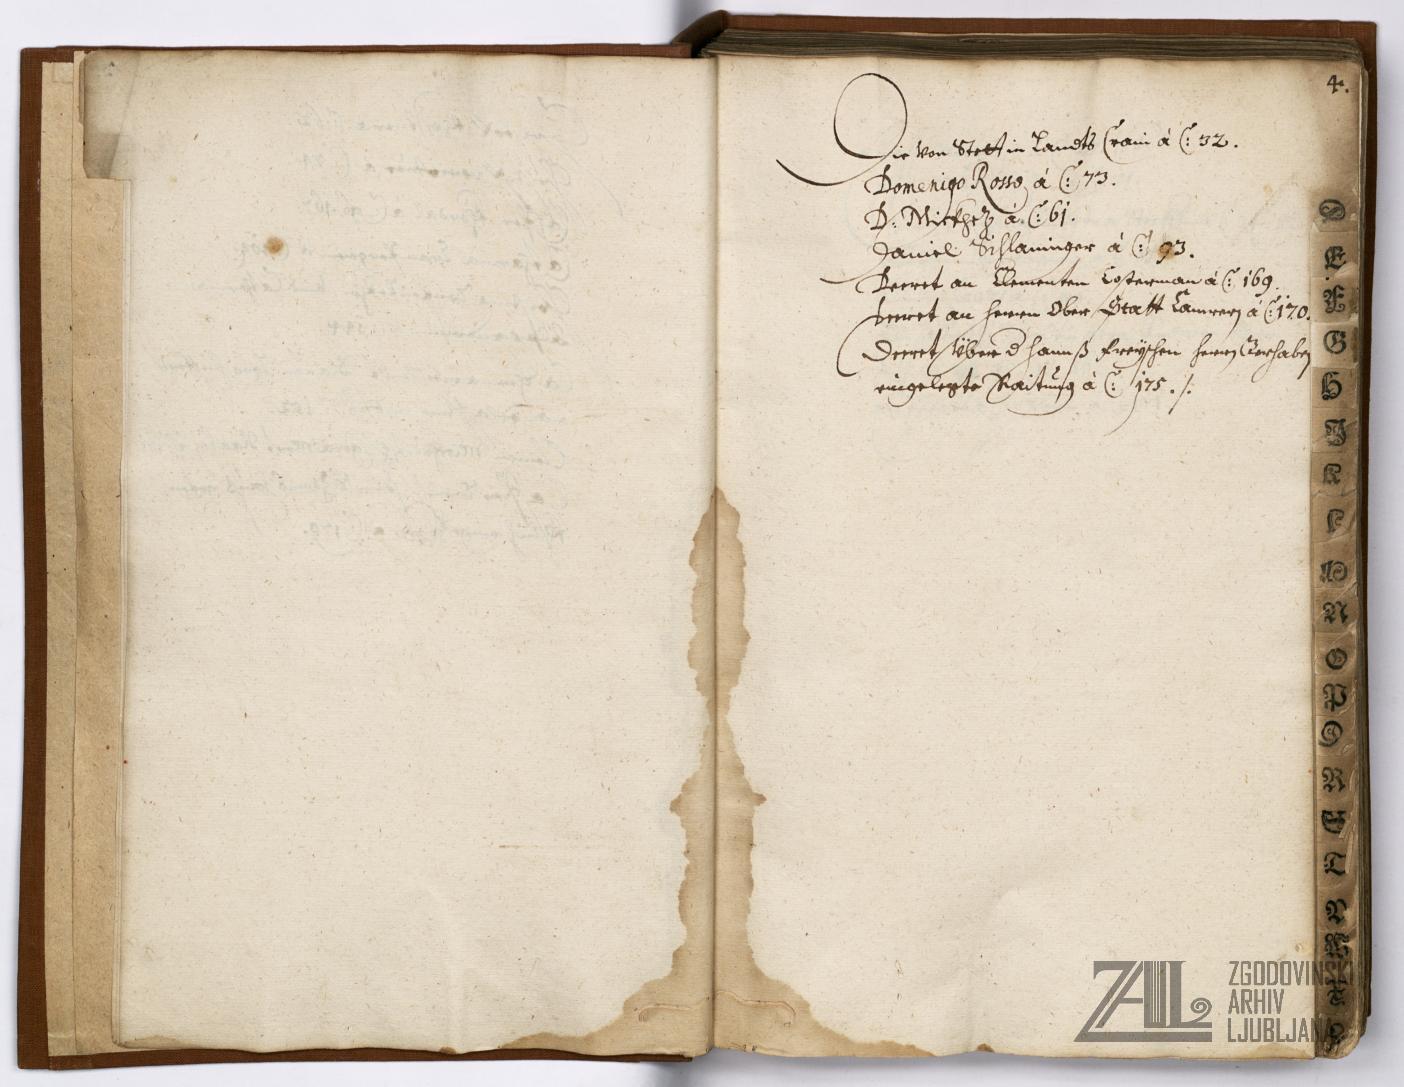 4.
Die von Stett in Landts Crain á C: 32.
Domenigo Rosso á C: 73.
D: Mickhez á C: 61.
Daniel Schlaninger á C: 93.
Decret an Clementen Costerman á C: 169.
Decret an herrn Ober Statt Camrern á C: 170.
Decret Über d hannß freyschen herrn Gerhaben
eingelegte Raitung á C: 175. /.
D
E
F
G
H
J
K
L
M
N
O
P
Q
R
S
T
V
W
ZAL
ZGODOVINSKI
ARHIV
LJUBLJANA